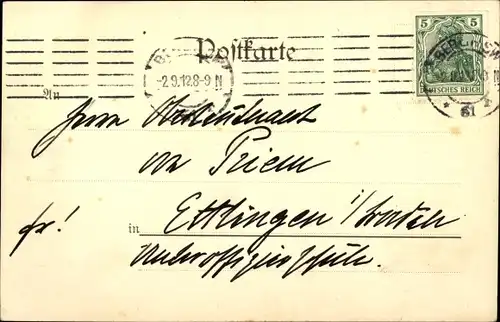 Postkarte
5 5
DEUTSCHES REICH
BERLIN SW
-2.9.12.8-9 N
* 61 *
An
Herrn Oberleutnant
von Priem
fr.!
in Ettlingen i/Baden
Unteroffizierschule.